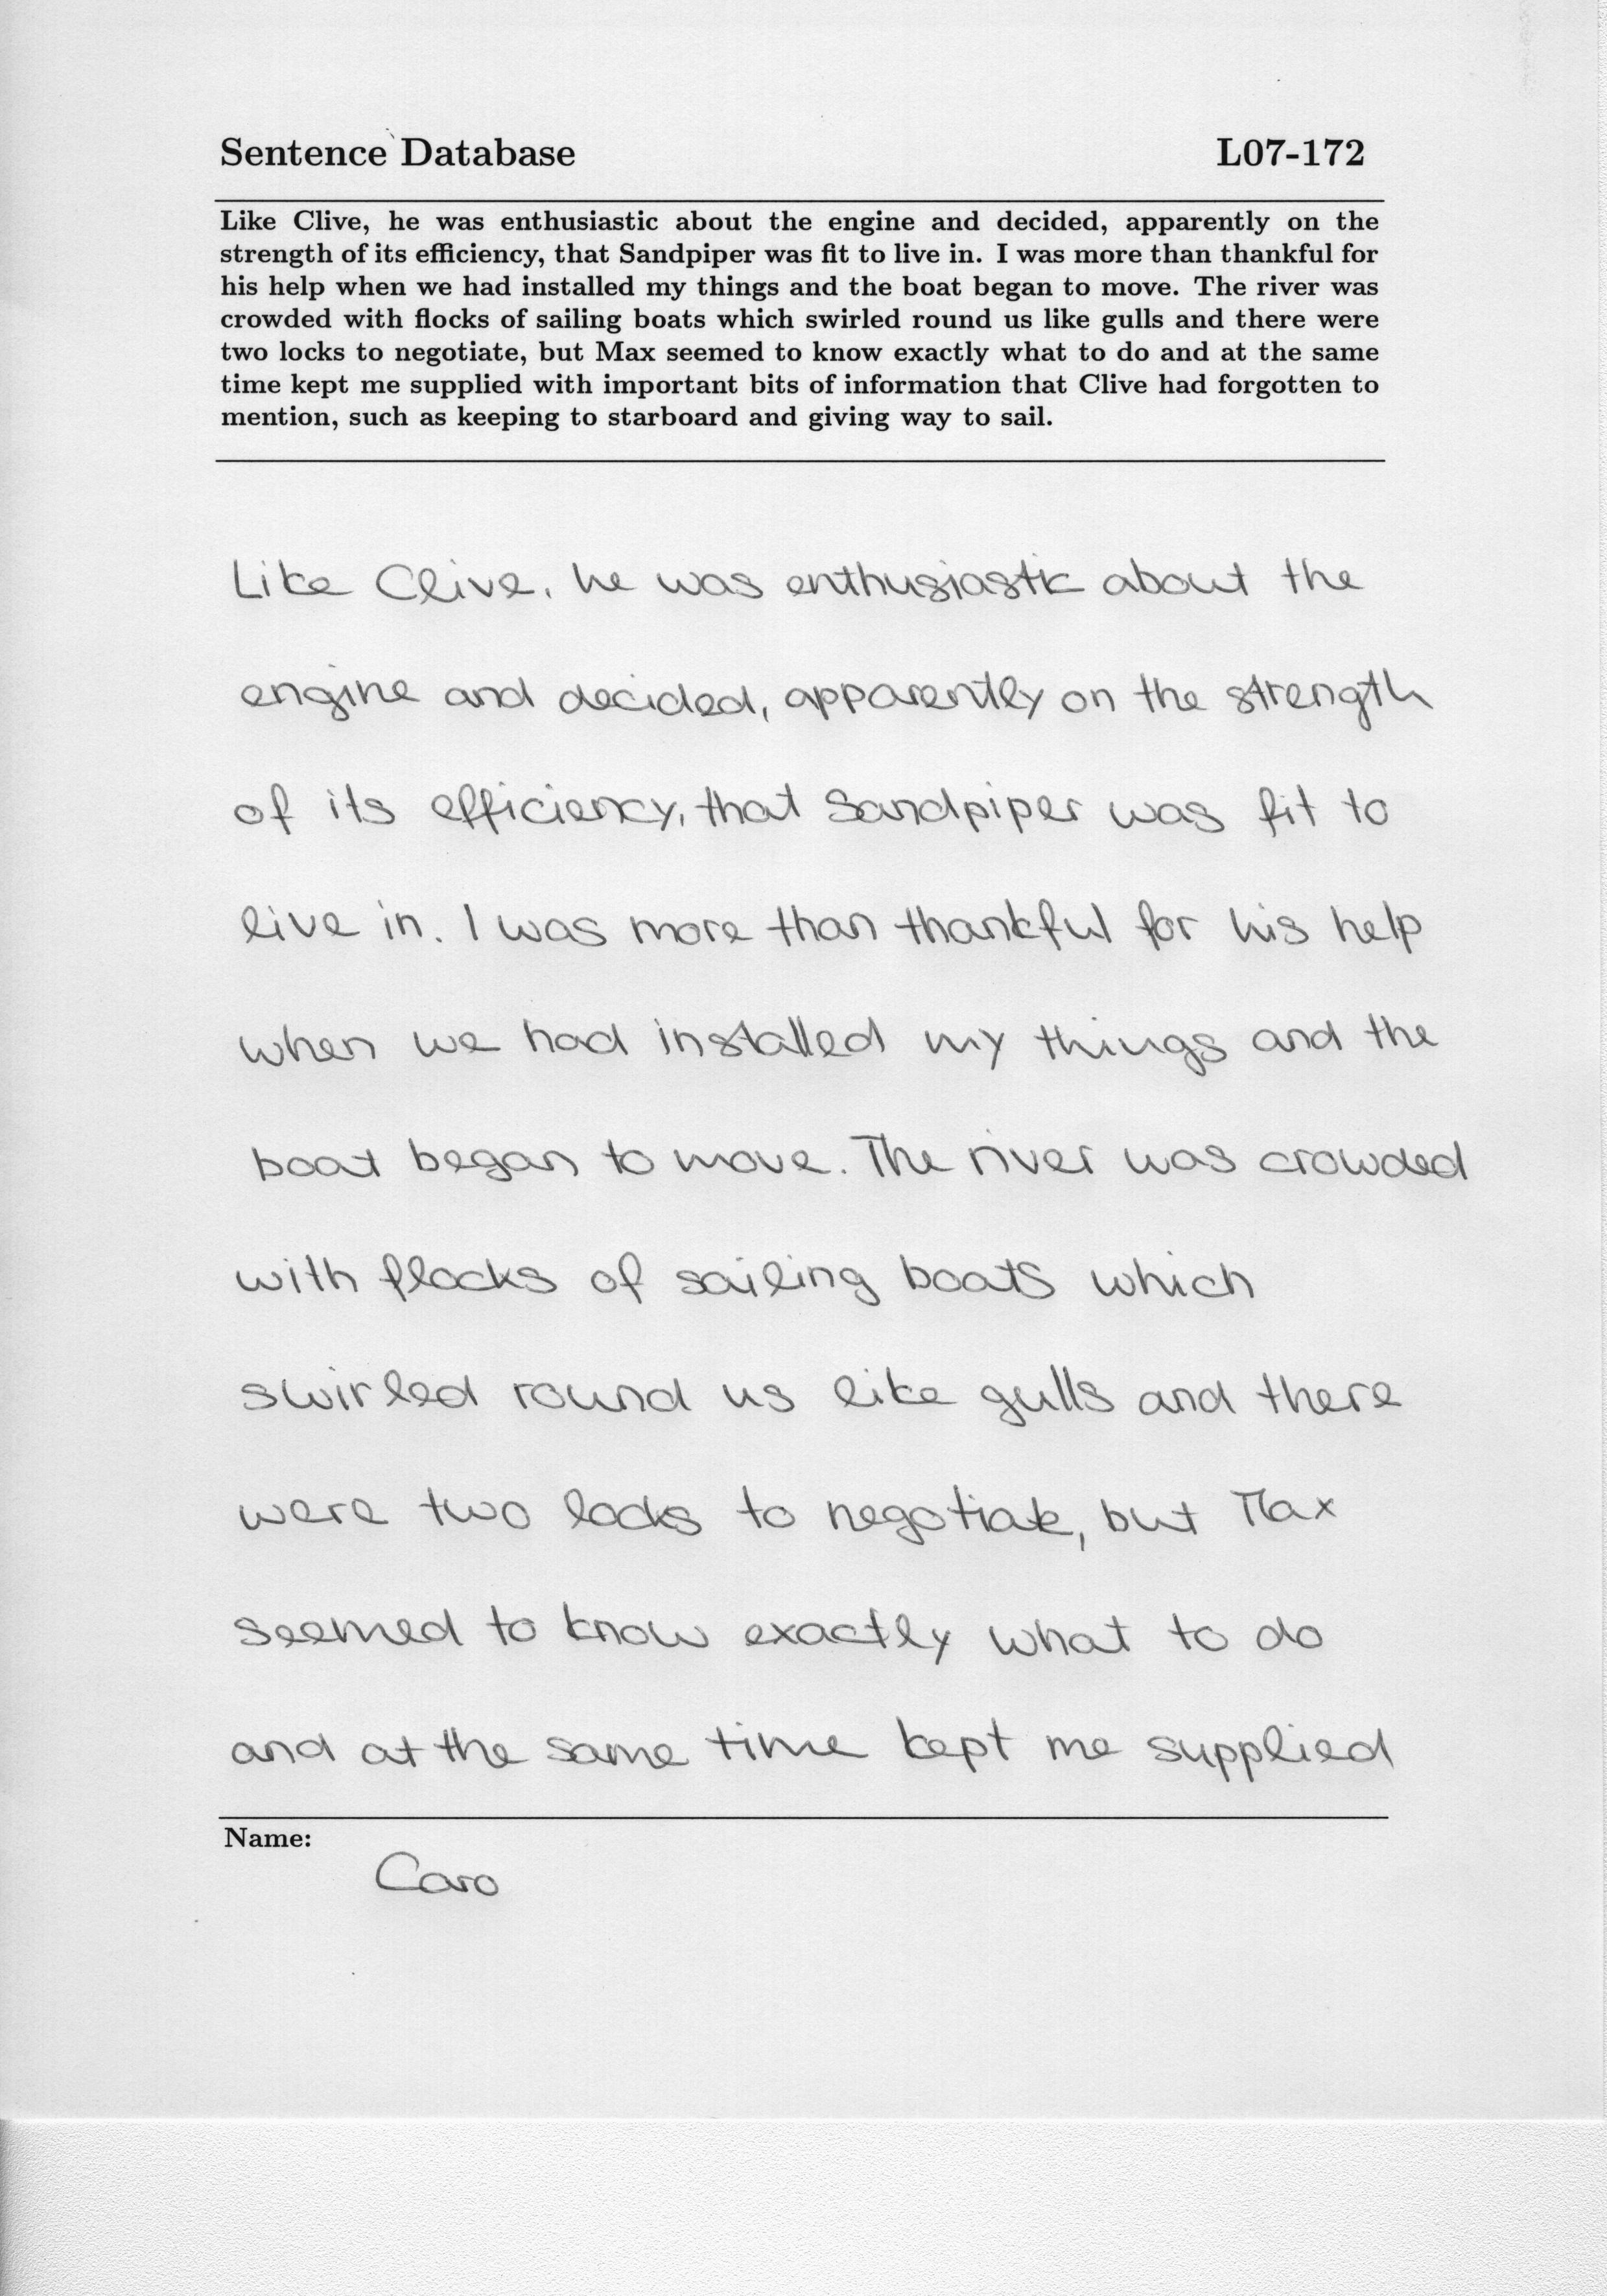 Sentence Database L07-172
Like Clive, he was enthusiastic about the engine and decided, apparently on the
strength of its efficiency, that Sandpiper was fit to live in. I was more than thankful for
his help when we had installed my things and the boat began to move. The river was
crowded with flocks of sailing boats which swirled round us like gulls and there were
two locks to negotiate, but Max seemed to know exactly what to do and at the same
time kept me supplied with important bits of information that Clive had forgotten to
mention, such as keeping to starboard and giving way to sail.
Like Clive, he was enthusiastic about the
engine and decided, apparently on the strength
of its efficiency, that Sandpiper was fit to
live in. I was more than thankful for his help
when we had installed my things and the
boat began to move. The river was crowded
with flocks of sailing boats which
swirled round us like gulls and there
were two locks to negotiate, but Max
seemed to know exactly what to do
and at the same time kept me supplied
Name:
Caro